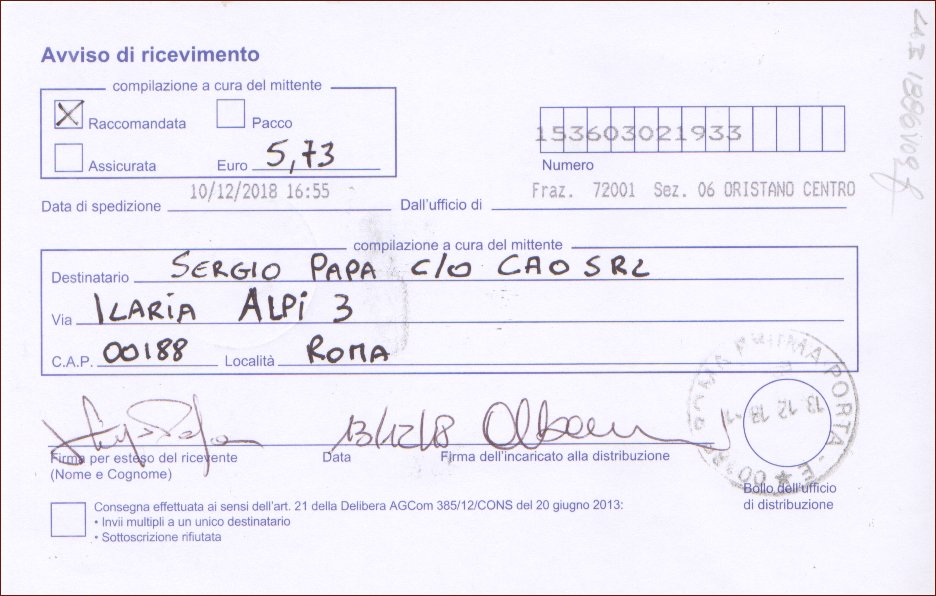 Avviso di ricevimento
compilazione a cura del mittente
Raccomandata Pacco
Assicurata Euro 5,73
153603021933
Numero
Data di spedizione 10/12/2018 16:55 Dall'ufficio di Fraz. 72001 Sez. 06 ORISTANO CENTRO
compilazione a cura del mittente
Destinatario SERGIO PAPA C/O CAO SRL
Via ILARIA ALPI 3
C.A.P. 00188 Località ROMA
13/12/18
Firma per esteso del ricevente Data Firma dell'incaricato alla distribuzione
(Nome e Cognome)
ROMA PRIMA PORTA
13 12 18
Bollo dell'ufficio
di distribuzione
Consegna effettuata ai sensi dell'art. 21 della Delibera AGCom 385/12/CONS del 20 giugno 2013:
• Invii multipli a un unico destinatario
• Sottoscrizione rifiutata